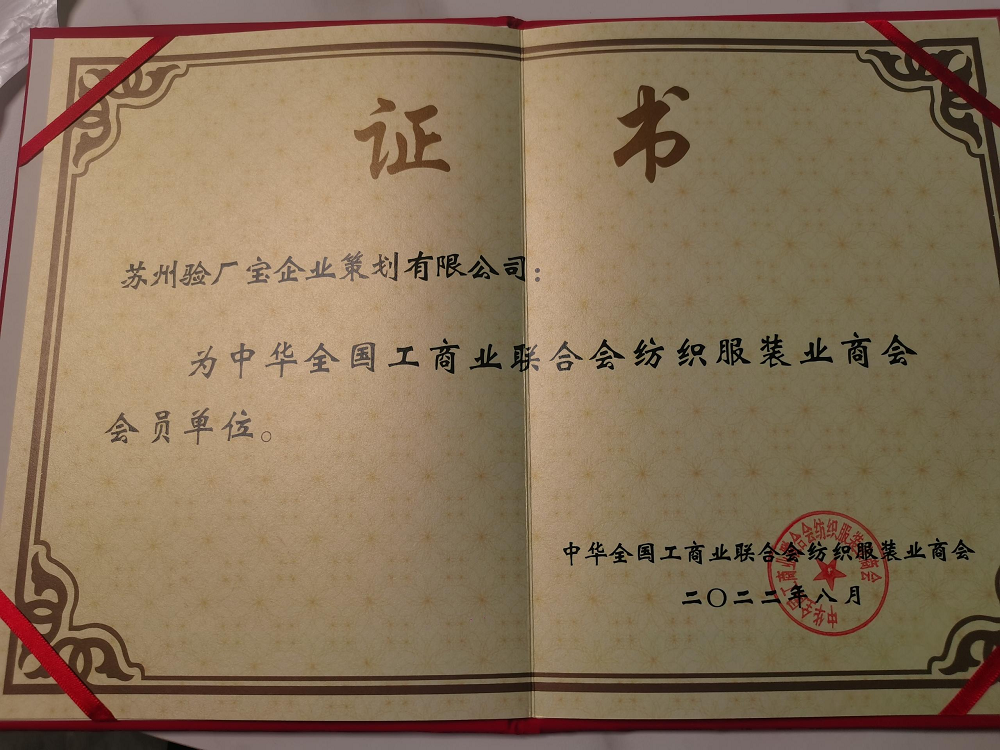 证书
苏州验厂宝企业策划有限公司：
为中华全国工商业联合会纺织服装业商会
会员单位。
中华全国工商业联合会纺织服装业商会
二〇二二年八月
中华全国工商业联合会纺织服装业商会